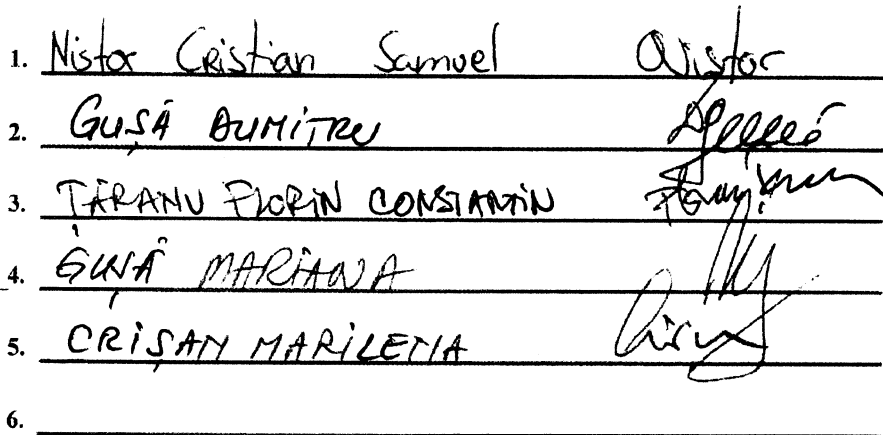 1. Nistor Cristian Samuel Nistor
2. GUȘĂ DUMITRU
3. ȚĂRANU FLORIN CONSTANTIN
4. GUȘĂ MARIANA
5. CRIȘAN MARILENA
6.